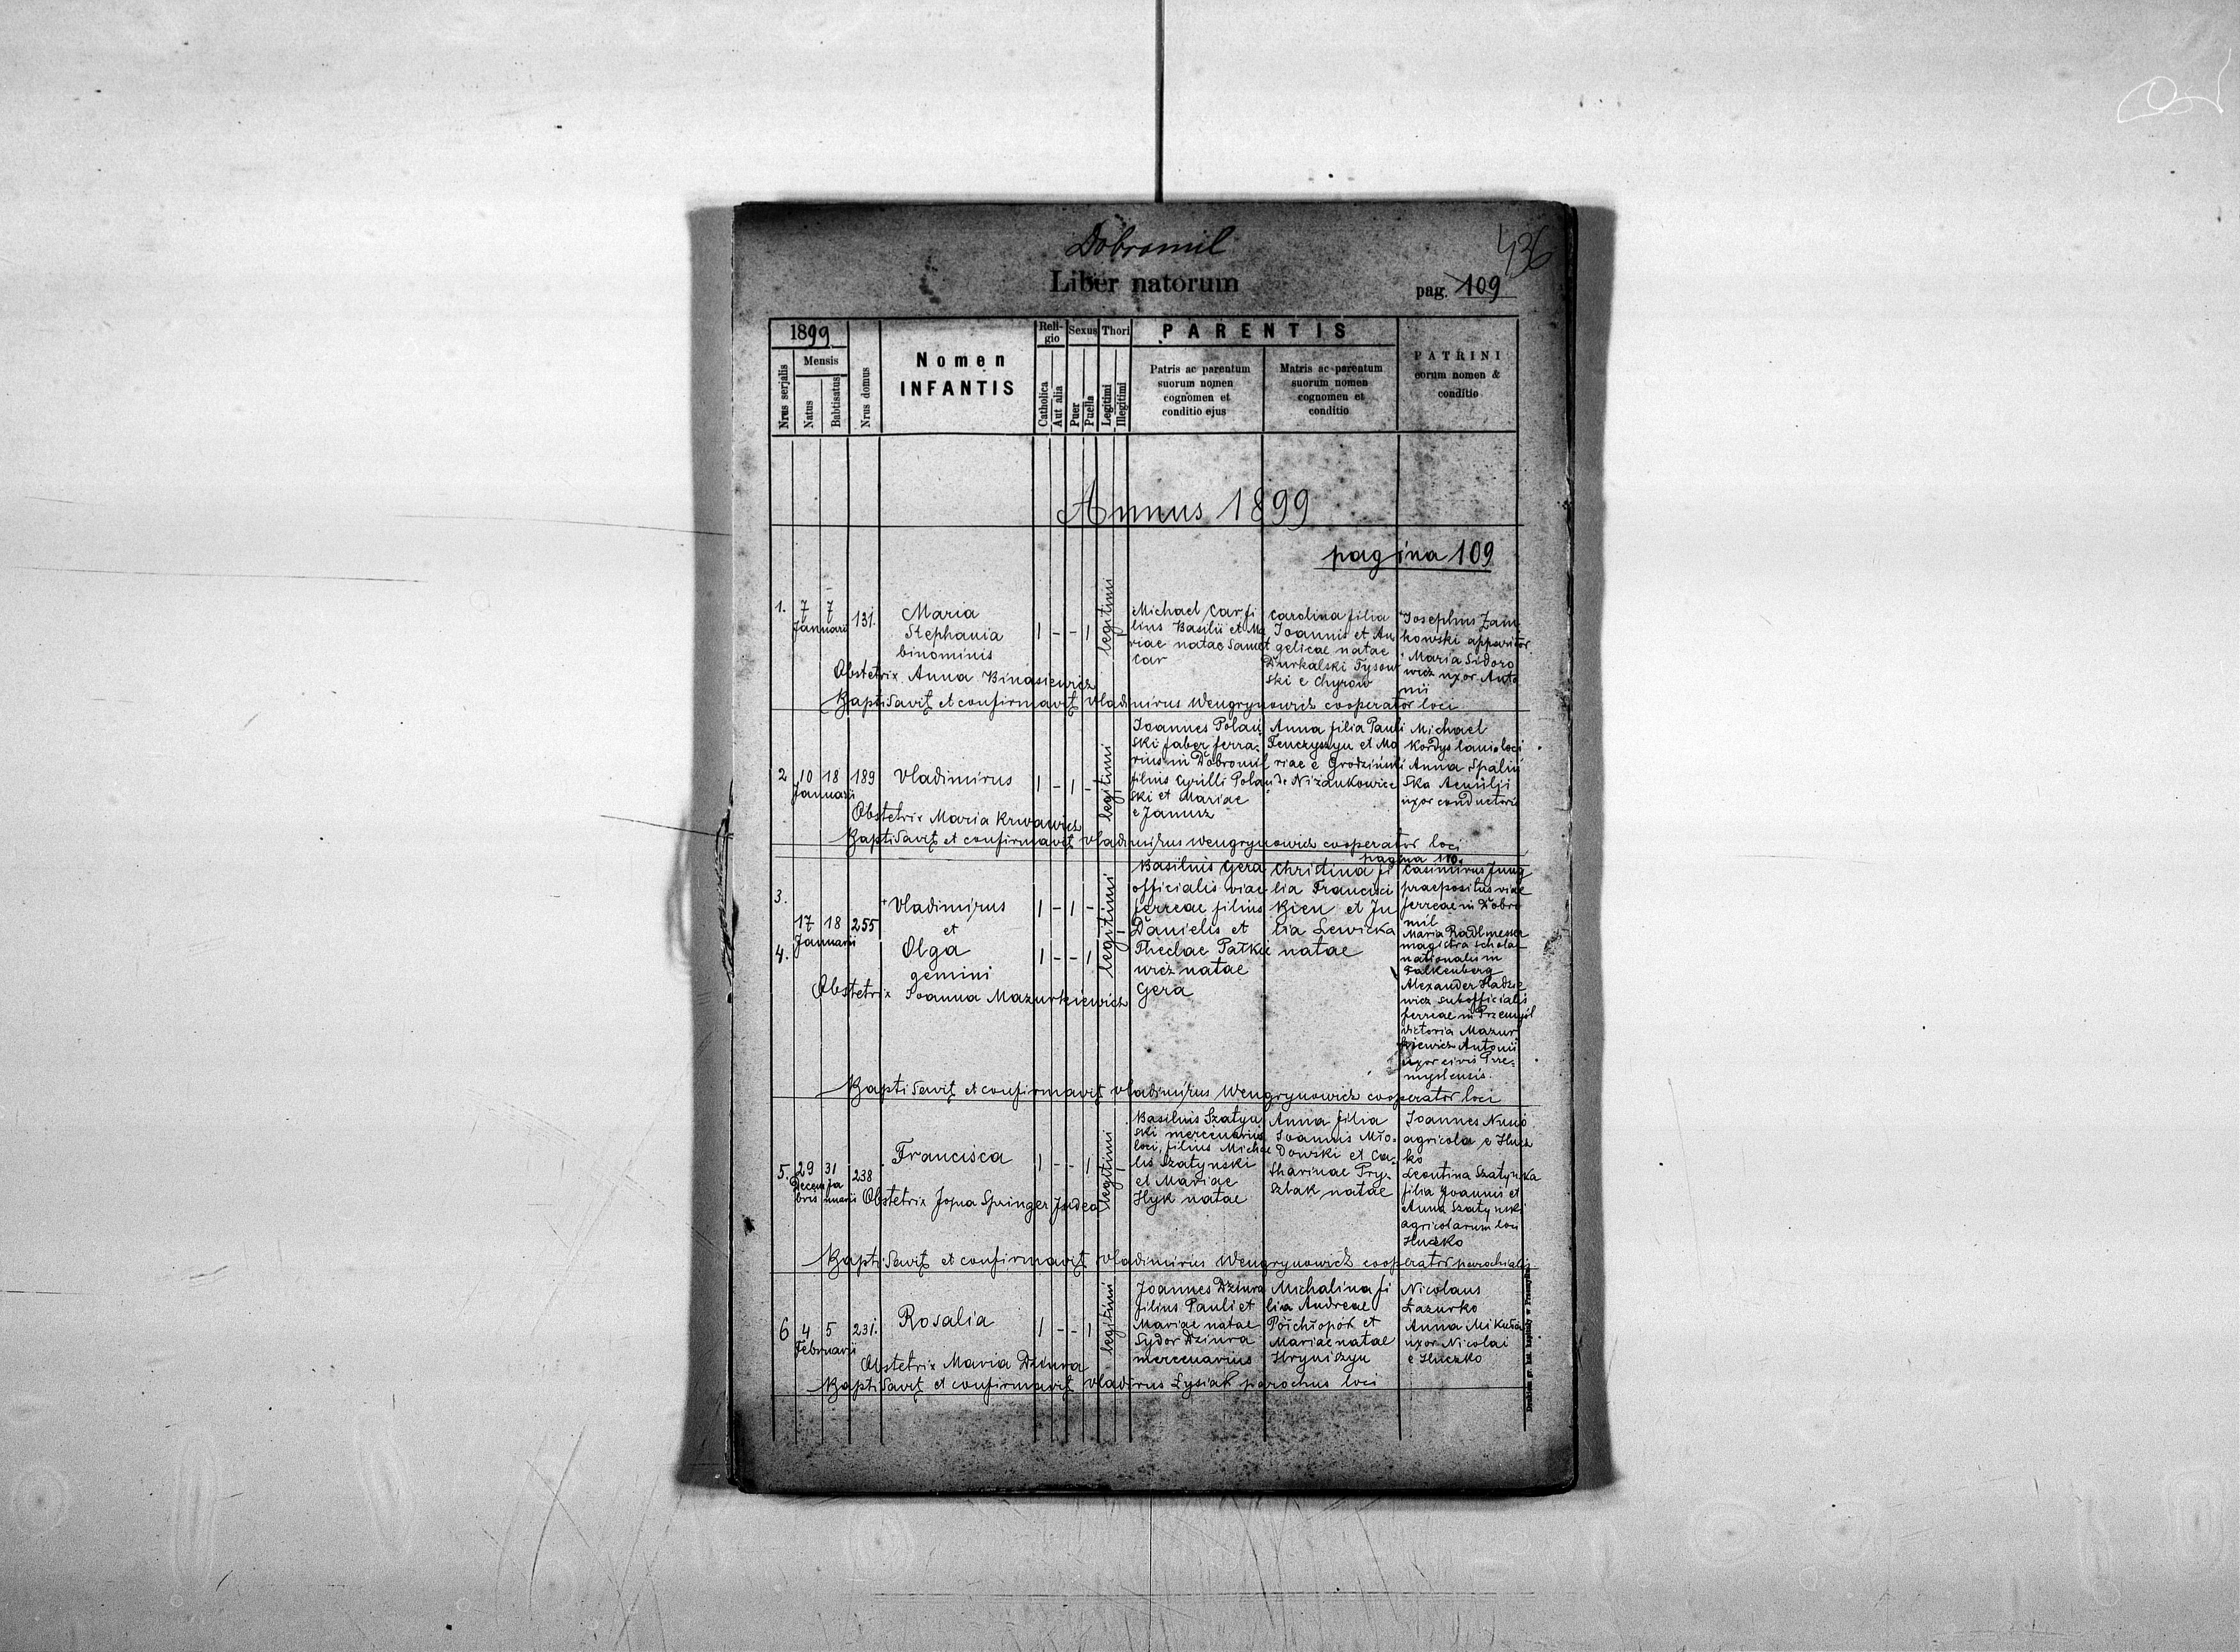 Dobromil
436
Liber natorum
pag. 109
1899
Nrus serjalis
Mensis
Natus
Babtisatus
Nrus domus
Nomen
INFANTIS
Religio
Catholica
Aut alia
Sexus
Puer
Puella
Thori
Legitimi
Illegitimi
PARENTIS
Patris ac parentum
suorum nomen
cognomen et
conditio ejus
Matris ac parentum
suorum nomen
cognomen et
conditio
PATRINI
eorum nomen &
conditio
Annus 1899
pagina 109
1. 7 7 Januarii 131.
Maria
Stephania
binominis
1 - - 1 legitimi
Michael Car fi
lius Basilii et Ma
riae natae
Car
Carolina filia
Joannis et An
gelicae natae
Durkalski Tysow
ski e Chyrow
Josephus Zan
kowski apparitor
Maria Sidoro
wicz uxor Anto
nii
Obstetrix Anna Binasiewicz
Baptisavit et confirmavit Vladimirus Wengrynowicz cooperator loci
2 10 18 Januarii 189
Vladimirus
1 - 1 - legitimi
Joannes Polan
ski faber ferra
rius in Dobromil
filius Cyrilli Polan
ski et Mariae
e Janusz
Anna filia Pauli
Tenczyszyn et Ma
riae e Grodzinski
de Nizankowice
Michael
Kordys lanio loci
Anna Spaliń
ska
uxor conductoris
Obstetrix Maria Krwawicz
Baptisavit et confirmavit Vladimirus Wengrynowicz cooperator loci
pagina 110.
3.
17 18 Januarii 255
4.
Vladimirus
et
Olga
gemini
1 - 1 -
1 - - 1
legitimi
Basilius Gera
officialis viae
ferreae filius
Danielis et
Theclae Patkie
wicz natae
Gera
Christina fi
lia Francisci
Bien et Ju
lia Lewicka
natae
Casimirus Jung
praepositus viae
ferreae in Dobro
mil
Maria Radlmesser
magistra scholae
nationalis in
Falkenberg
Alexander Hadzie
wicz subofficialis
ferreae in Przemyśl
Victoria Mazur
kiewicz Antonii
uxor civis Prze-
myslensis.
Obstetrix Joanna Mazurkiewicz
Baptisavit et confirmavit Vladimirus Wengrynowicz cooperator loci
5. 29 Decembris 31 Januarii 238
Francisca
1 - - 1 legitimi
Basilius Szatyn
ski mercenarius
loci, filius Michae
lis Szatynski
et Mariae
Hyk natae
Anna filia
Joannis Mło-
dowski et Ca-
tharinae Pry-
sztak natae
Joannes
agricola e Hucz
ko
Leontina Szatynska
filia Joannis et
Anna Szatynski
agricolarum loci
Huczko
Obstetrix Springer Judea
Baptisavit et confirmavit Vladimirus Wengrynowicz cooperator parochialis
6 4 5 Februarii 231.
Rosalia
1 - - 1 legitimi
Joannes Dziura
filius Pauli et
Mariae natae
Sydor Dziura
mercenarius
Michalina fi
lia Andreae
Półchłopók et
Mariae natae
Hryniszyn
Nicolaus
Łazurko
Anna Mikuła
uxor Nicolai
e Huczko
Obstetrix Maria Dziura
Baptisavit et confirmavit Vladirus Lysiak parochus loci